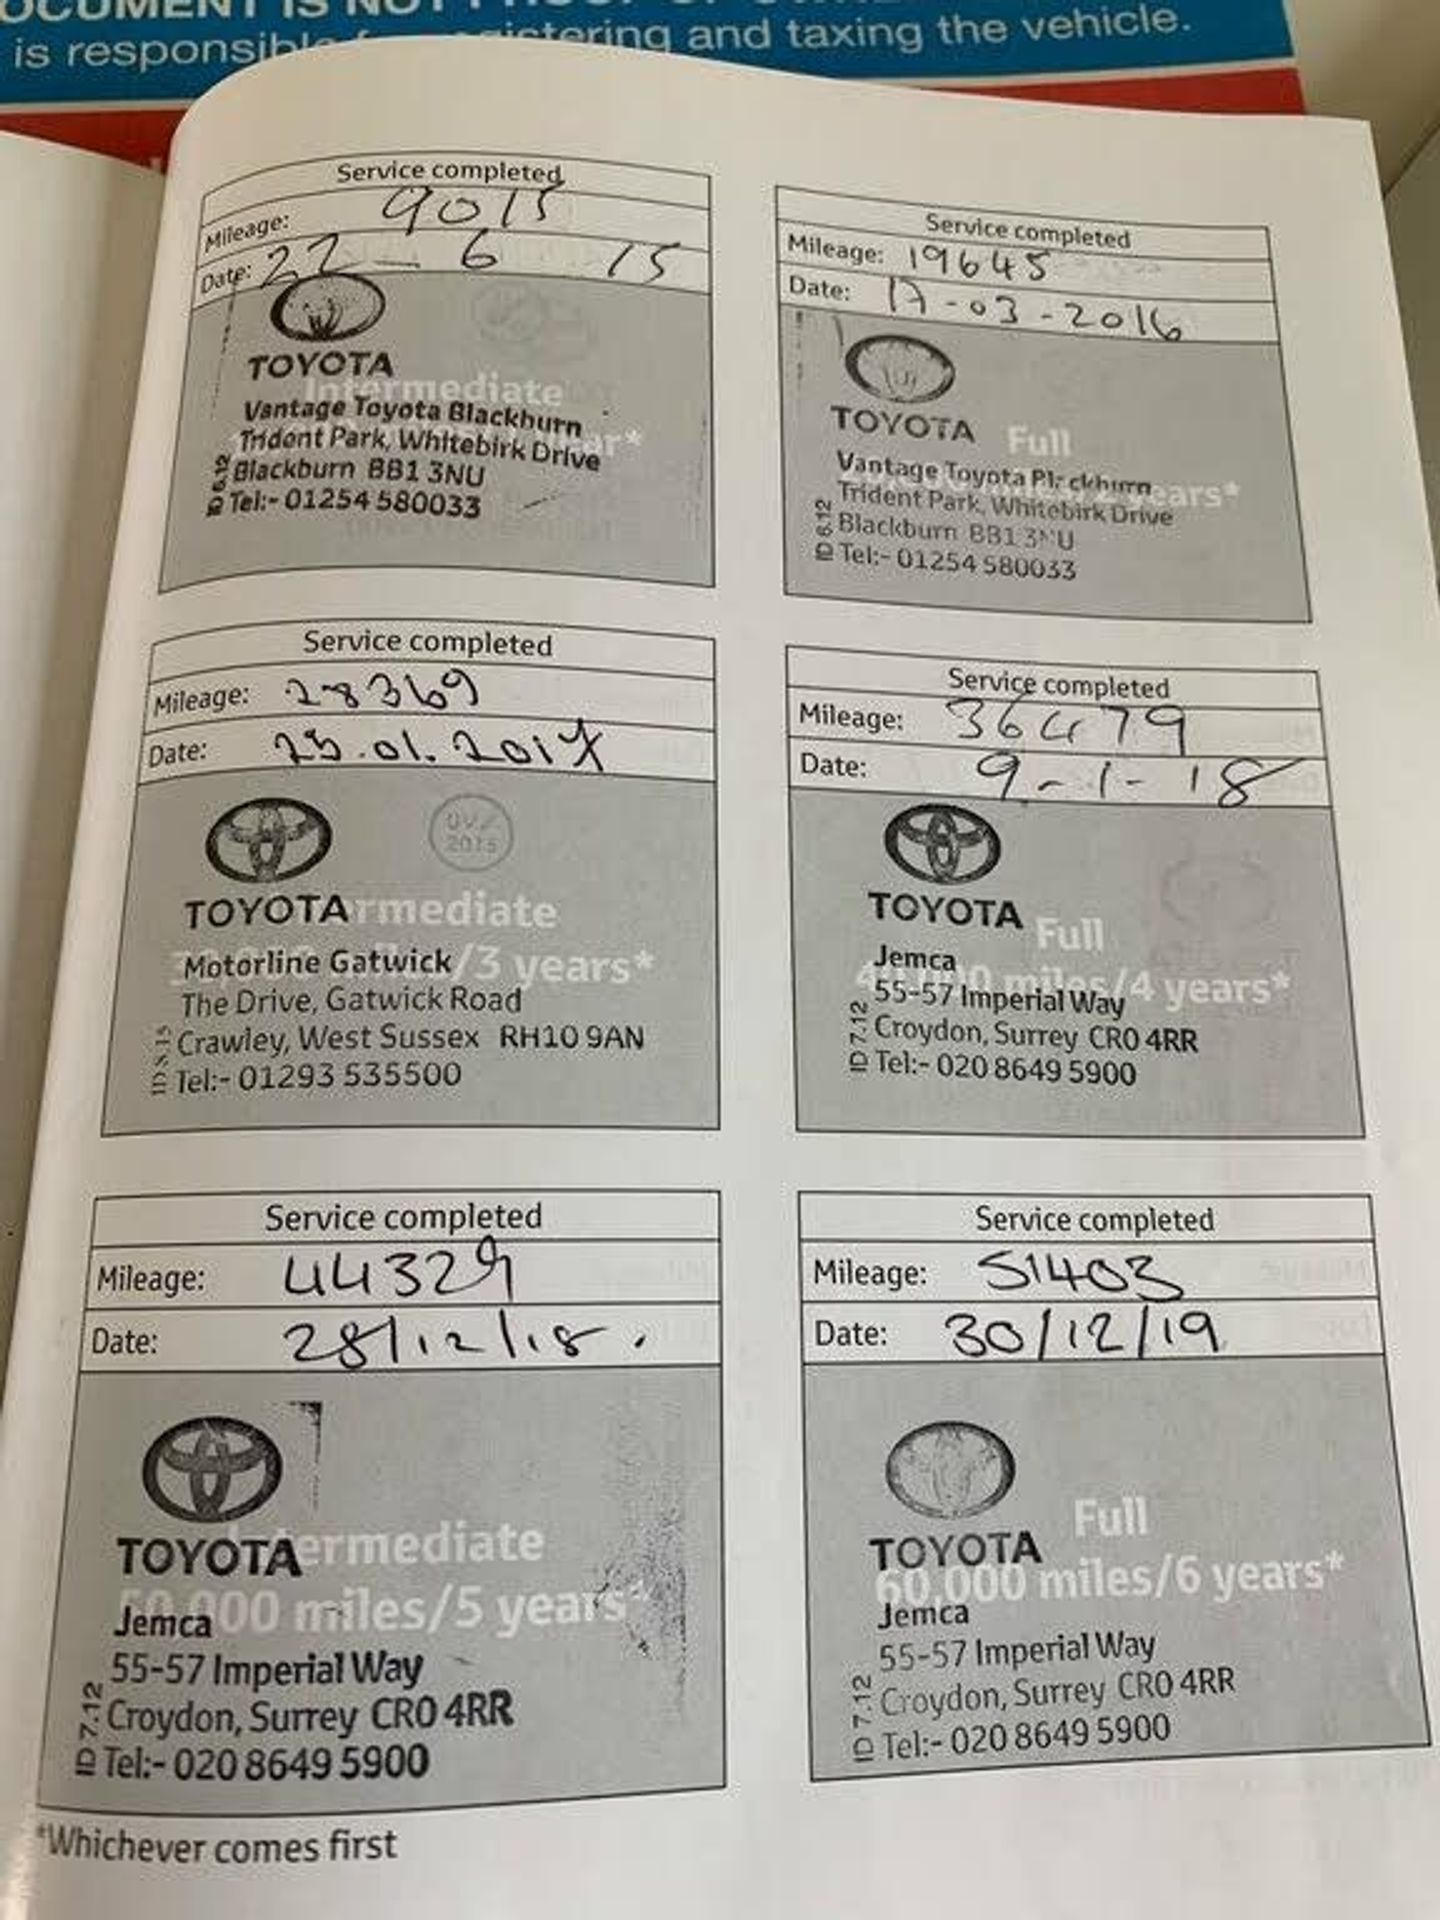 is responsible for registering and taxing the vehicle.
Service completed
Mileage: 9015
Date: 22 - 6 15
TOYOTA
Intermediate
Vantage Toyota Blackburn
Trident Park, Whitebirk Drive
Blackburn BB1 3NU
ID 6.12 Tel:- 01254 580033
Service completed
Mileage: 19645
Date: 17-03-2016
TOYOTA
Full
Vantage Toyota Blackburn
years*
Trident Park, Whitebirk Drive
Blackburn BB1 3NU
ID 6.12 Tel:- 01254 580033
Service completed
Mileage: 28369
Date: .01.2017
TOYOTA
Intermediate
Motorline Gatwick
/3 years*
The Drive, Gatwick Road
Crawley, West Sussex RH10 9AN
ID 8.15 Tel:- 01293 535500
Service completed
Mileage: 36479
Date: 9-1-18
TOYOTA
Full
Jemca
miles/4 years*
55-57 Imperial Way
Croydon, Surrey CR0 4RR
ID 7.12 Tel:- 020 8649 5900
Service completed
Mileage: 44329
Date: 28/12/18.
TOYOTA
Intermediate
50,000 miles/5 years*
Jemca
55-57 Imperial Way
Croydon, Surrey CR0 4RR
ID 7.12 Tel:- 020 8649 5900
Service completed
Mileage: 51403
Date: 30/12/19
TOYOTA
Full
60,000 miles/6 years*
Jemca
55-57 Imperial Way
Croydon, Surrey CR0 4RR
ID 7.12 Tel:- 020 8649 5900
*Whichever comes first